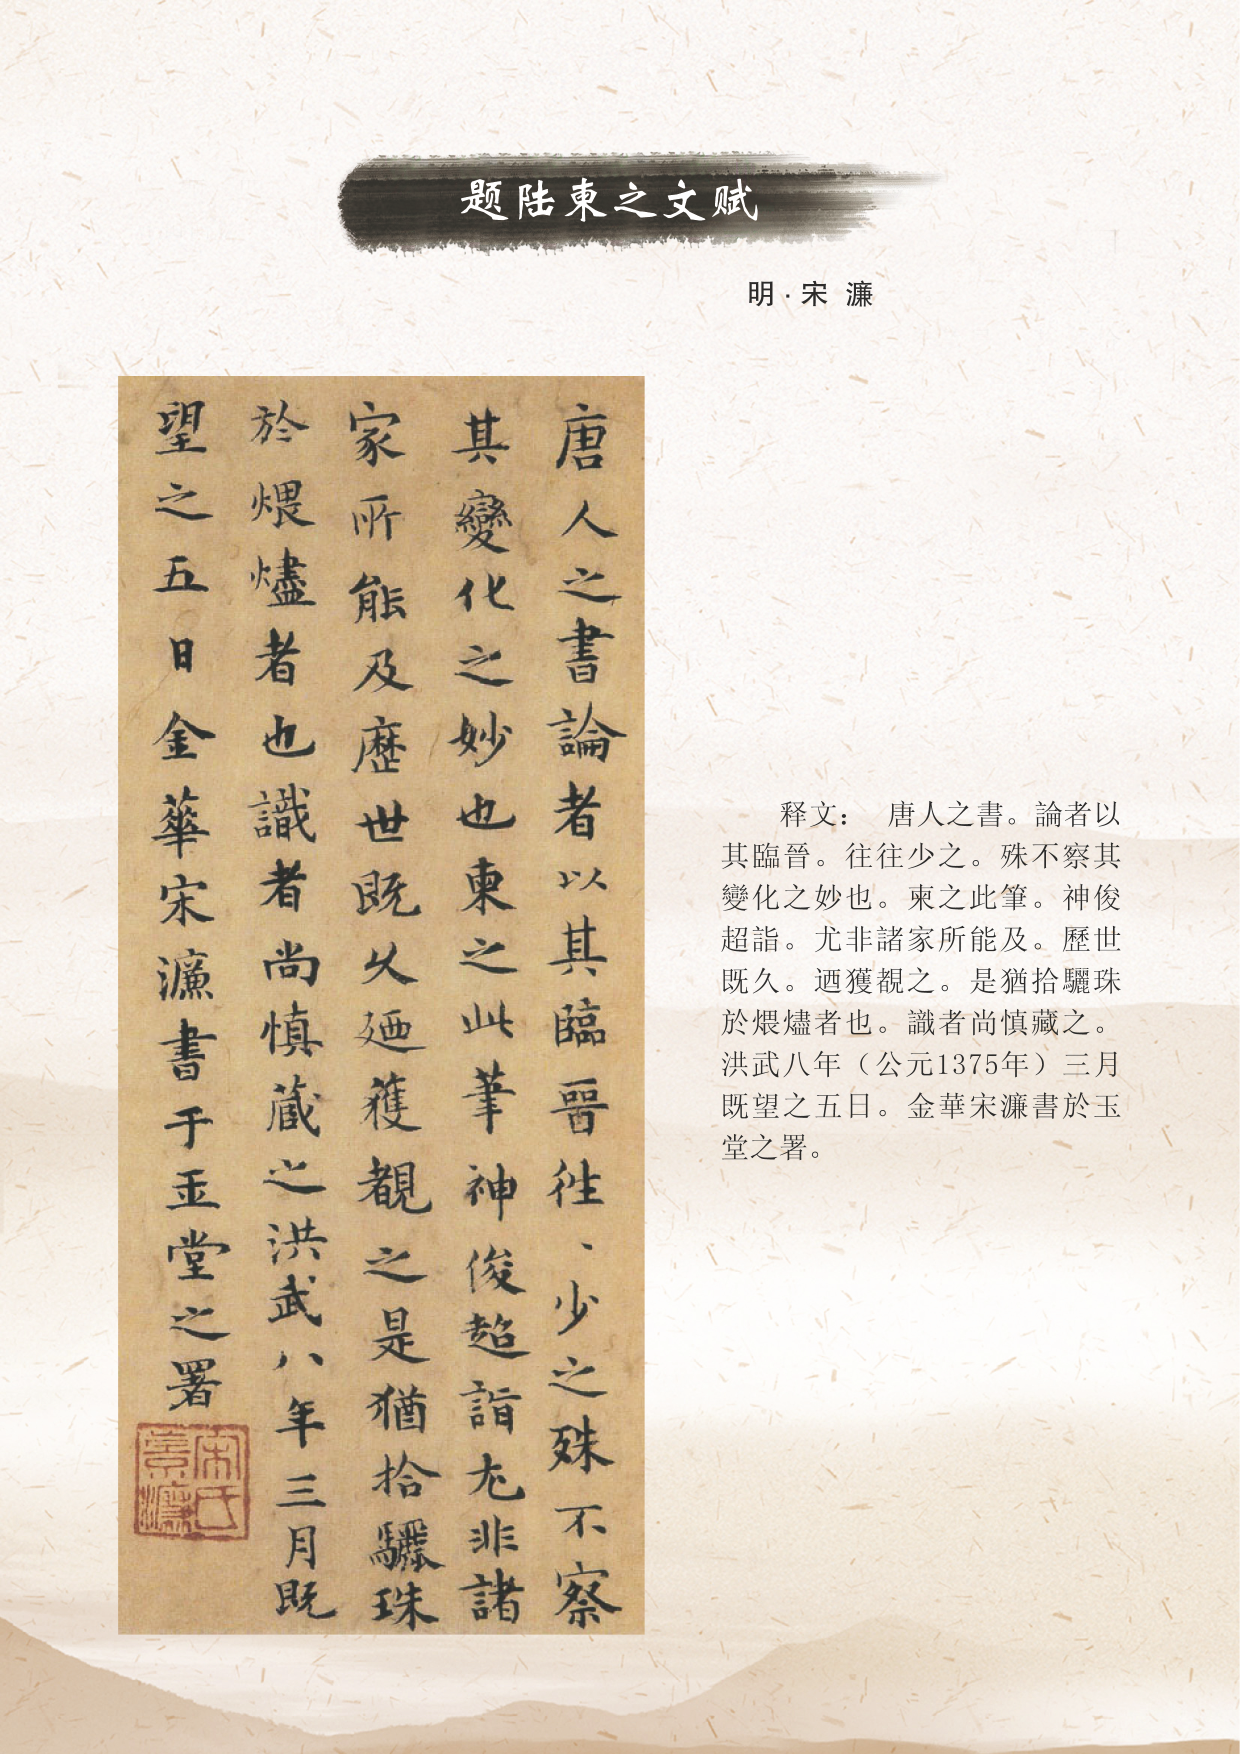 题陆柬之文赋
明·宋 濂
唐人之書論者以其臨晉徃、少之殊不察
其變化之妙也柬之此筆神俊超詣尤非諸
家所能及歷世既久廼獲覩之是猶拾驪珠
於煨燼者也識者尚慎藏之洪武八年三月既
望之五日金華宋濂書于玉堂之署
宋氏景濂
释文： 唐人之書。論者以
其臨晉。往往少之。殊不察其
變化之妙也。柬之此筆。神俊
超詣。尤非諸家所能及。歷世
既久。迺獲覩之。是猶拾驪珠
於煨燼者也。識者尚慎藏之。
洪武八年（公元1375年）三月
既望之五日。金華宋濂書於玉
堂之署。